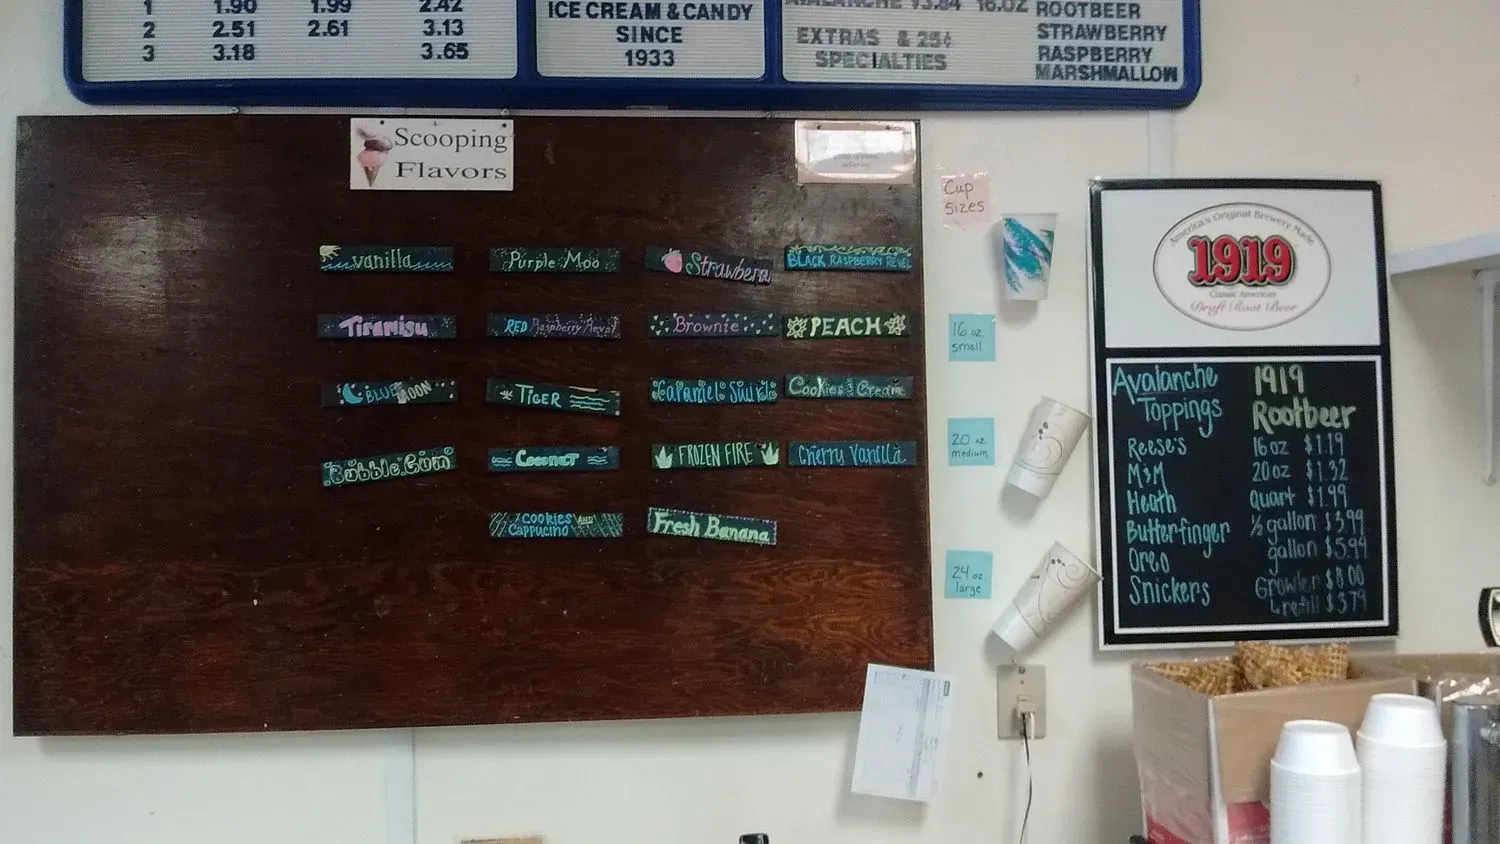 1 1.90 1.99 2.42
2 2.51 2.61 3.13
3 3.18 3.65
ICE CREAM & CANDY
SINCE
1933
AVALANCHE 16.OZ
EXTRAS & 25¢
SPECIALTIES
ROOTBEER
STRAWBERRY
RASPBERRY
MARSHMALLOW
Scooping
Flavors
vanilla
Purple Moo
Strawberry
BLACK RASPBERRY REVEL
Tiramisu
RED Raspberry Revel
Brownie
PEACH
BLUE MOON
TIGER
Caramel Swirl
Cookies & Cream
Bubble Gum
Coconut
FROZEN FIRE
Cherry Vanilla
COOKIES AND
CAPPUCINO
Fresh Banana
Cup
Sizes
16 oz
small
20 oz
medium
24 oz
large
America's Original Brewery Made
1919
Classic American
Draft Root Beer
Avalanche
Toppings
Reese's
M&M
Heath
Butterfinger
Oreo
Snickers
1919
Rootbeer
16 oz $1.19
20 oz $1.32
Quart $1.99
½ gallon $3.99
gallon $5.99
Growler $8.00
refill $3.79